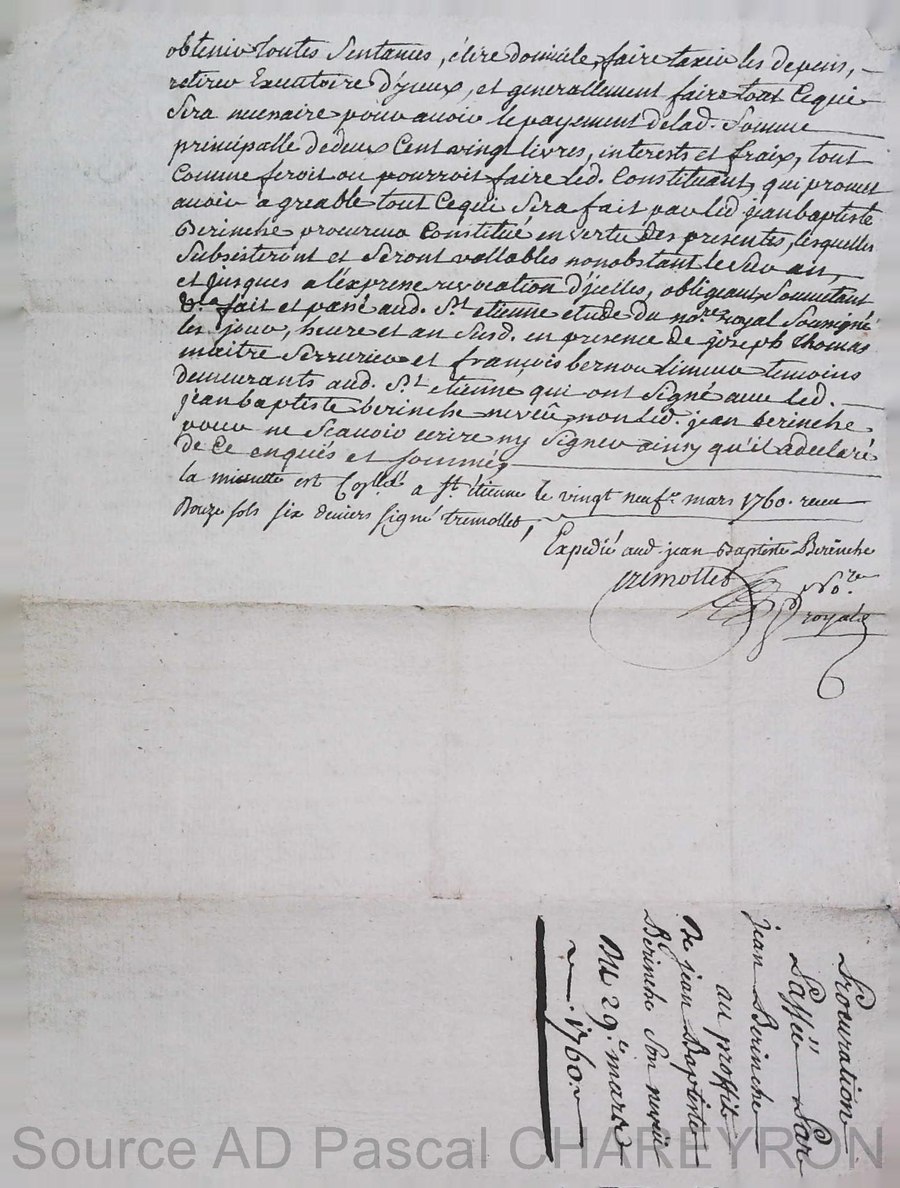 obtenir toutes Sentances, élire domicile, faire taxer les depens,
retirer Executoire D'yceux, et generallement faire tout Cequi
Sera necessaire pour avoir le payement delad. Somme
principalle dedeux Cent vingt livres, interests et fraix, tout
Comme feroit ou pourroit faire led. Constituant, qui promet
avoir agreable tout Cequi Sera fait par led jean baptiste
Berinche procureur Constitué en vertu des presentes, lesquelles
Subsisteront et Seront vallables nonobstant le Sur an,
et jusques a l'expresse revocation D'ycelles, obligeant, Soumettant
&.a fait et passé aud. St. etienne etude du no.re royal Soussigné
les jour, heure et an Susd. en presence de joseph Thomas
maitre Serrurier et françois bernou limeur temoins
demeurants aud. St etienne qui ont Signé avec led.
jean baptiste berinche neveû, non led. jean berinche
pour ne Scavoir ecrire ny Signer ainsy qu'il a declaré
de Ce enquis et sommé,
la minutte est Co.llée a St. étienne le vingt neuf.e mars 1760. receu
Douze sols six deniers signé tremollet,
Expedié aud. jean Baptiste Berinche
tremollet no.re
royal
Procuration
Passée Par
jean Berinche
au proffit
De jean Baptiste
Berinche Son neveu
Du 29.e mars
1760.
Source AD Pascal CHAREYRON